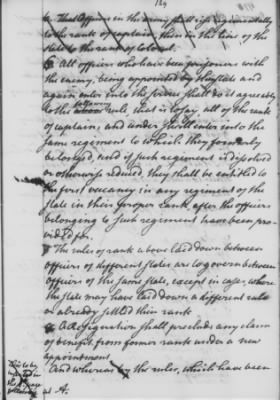 124
4. That Officers in the army shall rise regimentally
to the rank of captain, then in the line of the
state to the rank of Colonel.
5. All officers who have been prisoners with
the enemy, being appointed by their state and
again enter into the service shall do it agreeably
to the above following rule, that is to say, all of the rank
of captain, and under shall enter into the
same regiment to which they formerly
belonged, and if such regiment is dissolved
or otherwise reduced, they shall be entitled to
the first vacancy in any regiment of the
state in their proper rank after the officers
belonging to such regiment have been pro-
vided for.
The rules of rank above laid down between
officers of different states are to govern between
officers of the same state, except in cases where
the state may have laid down a different rule
or already settled their rank
A resignation shall preclude any claim
of benefit from former rank under a new
appointment
And whereas by the rules, which have been
at A.